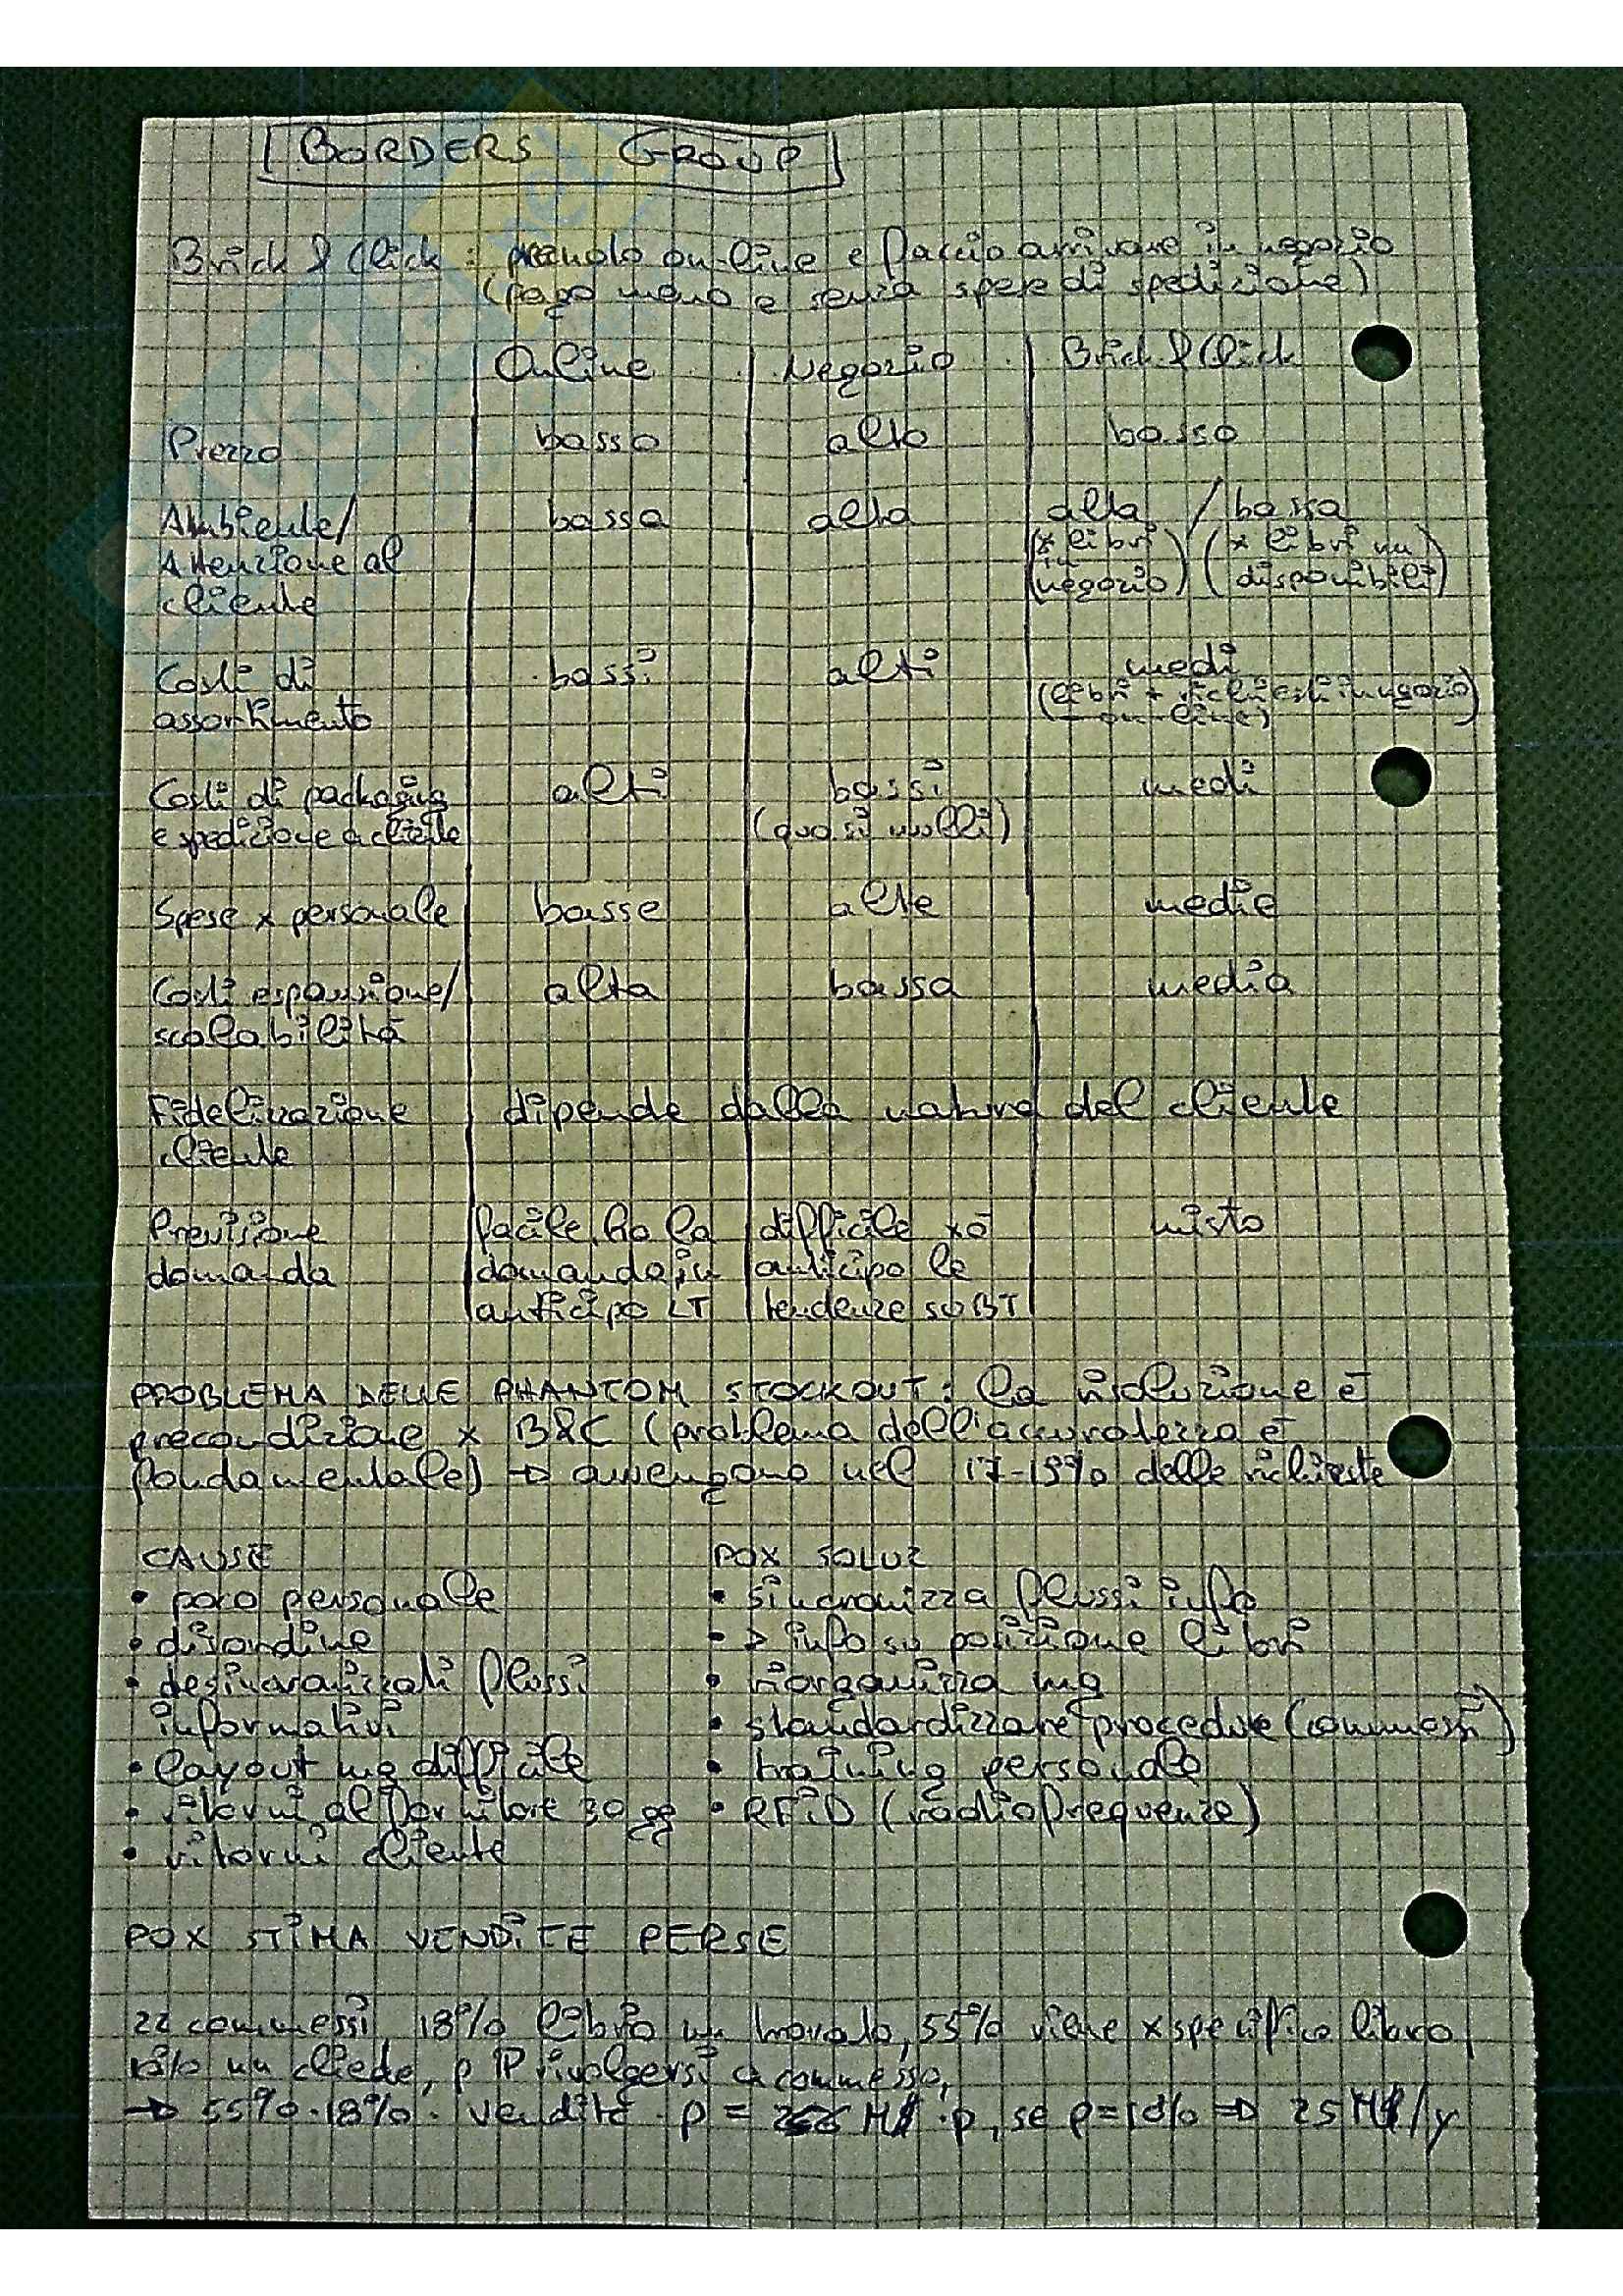 BORDERS GROUP
Brick & Click : prenoto on-line e faccio arrivare in negozio
(pago meno e senza spese di spedizione)
Online Negozio Brick & Click
Prezzo basso alto basso
Ambiente/ bassa alta alta / bassa
Attenzione al (x libri in negozio) (x libri nn disponibili)
cliente
Costi di bassi alti medi
assortimento (libri + richiesti in negozio
- on-line)
Costi di packaging alti bassi medi
e spedizione a cliente (quasi nulli)
Spese x personale basse alte medie
Costi espansione/ alta bassa media
scalabilità
Fidelizzazione dipende dalla natura del cliente
cliente
Previsione facile, ho la difficile xò misto
domanda domanda in anticipo le
anticipo LT tendenze su BT
PROBLEMA DELLE PHANTOM STOCKOUT : la risoluzione è
precondizione x B&C (problema dell'accuratezza è
fondamentale) → avvengono nel 17-19% delle richieste
CAUSE POX SOLUZ
• poco personale • sincronizza flussi info
• disordine • > info su posizione libri
• desincronizzati flussi • riorganizza mg
informativi • standardizzare procedure (commessi)
• layout mg difficile • training personale
• ritorni al fornitore 30 gg • RFiD (radiofrequenze)
• ritorni cliente
POX STIMA VENDITE PERSE
22 commessi, 18% libro nn trovato, 55% viene x specifico libro,
nn chiede, p IP rivolgersi a commesso,
→ 55% · 18% · vendite · p = M$ · p, se p=10% ⇒ 25 M$/y